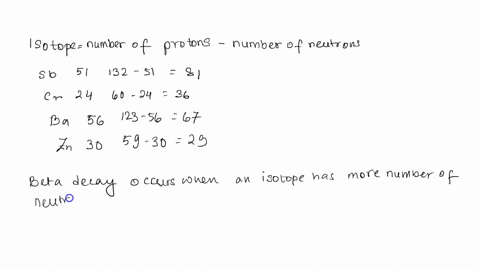 Isotope = number of protons - number of neutrons
Sb 51 132 - 51 = 81
Cr 24 60 - 24 = 36
Ba 56 123 - 56 = 67
Zn 30 59 - 30 = 29
Beta decay occurs when an isotope has more number of
neutro